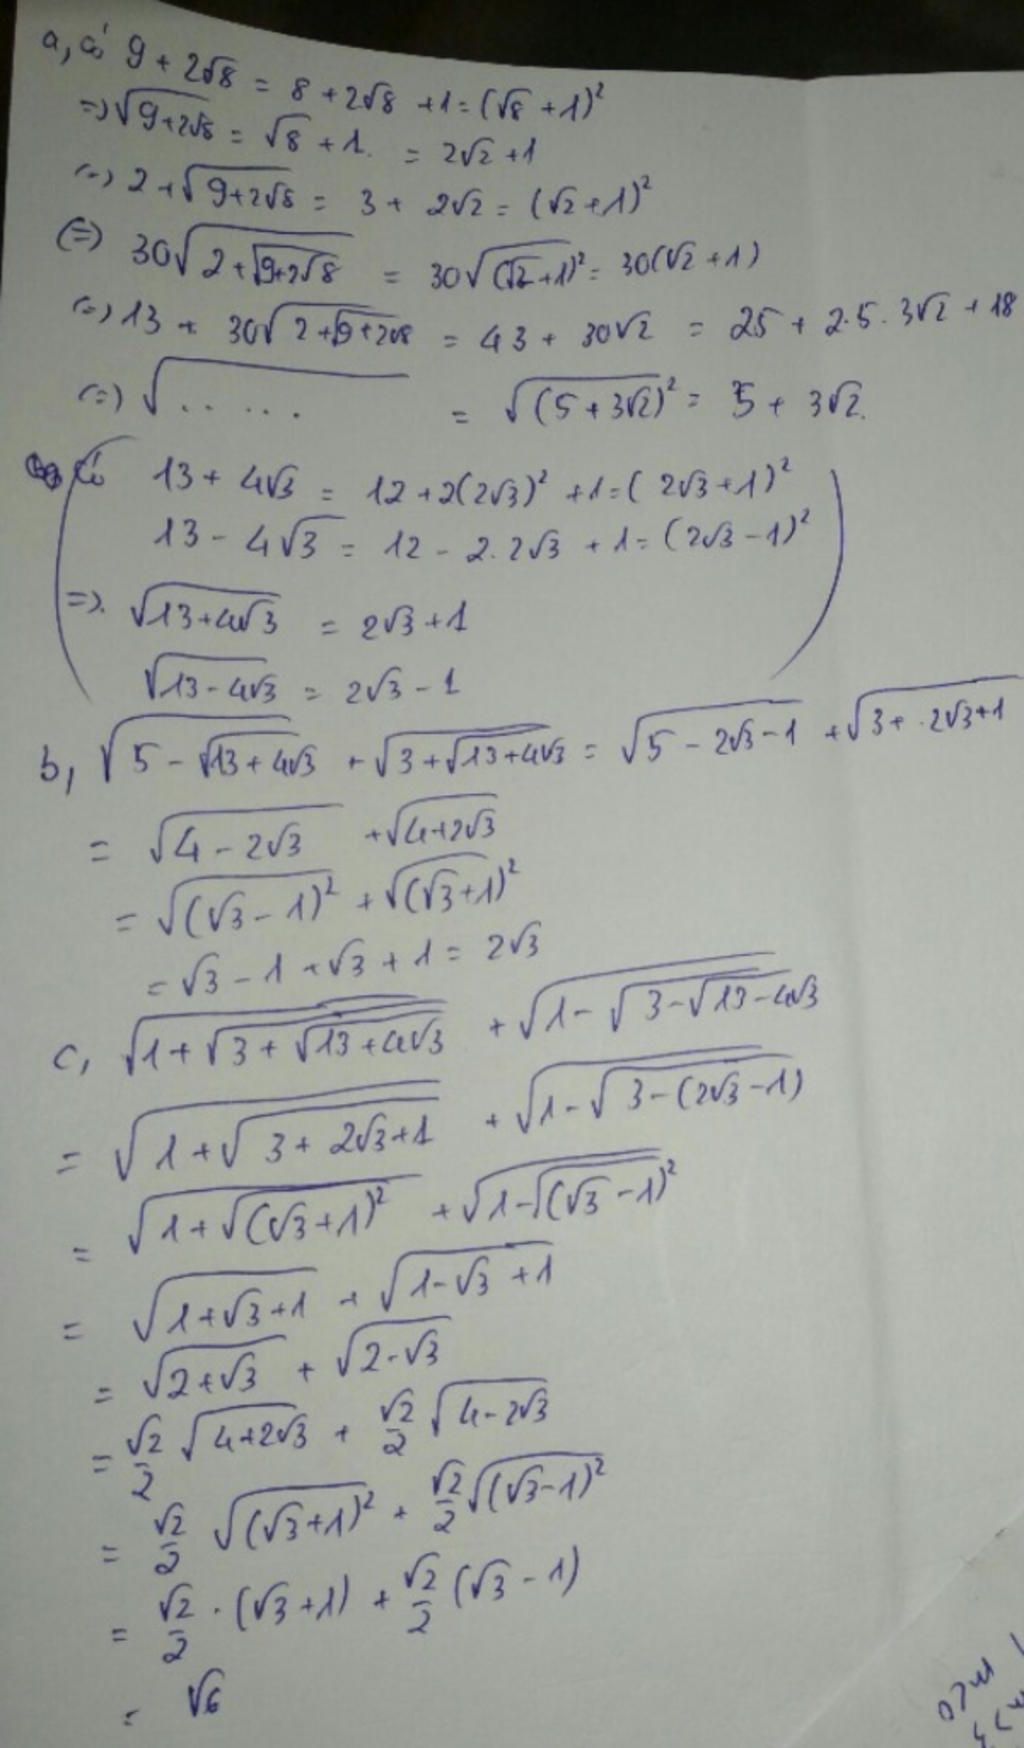 a, có 9 + 2√8 = 8 + 2√8 + 1 = (√8 + 1)²
=> √(9+2√8) = √8 + 1. = 2√2 + 1
(=) 2 + √(9+2√8) = 3 + 2√2 = (√2 + 1)²
(=) 30√(2 + √(9+2√8)) = 30√((√2+1)²) = 30(√2 + 1)
(=) 13 + 30√(2+√(9+2√8)) = 43 + 30√2 = 25 + 2.5.3√2 + 18
(=) √(.. ...) = √((5 + 3√2)²) = 5 + 3√2.
Có 13 + 4√3 = 12 + 2(2√3)² + 1 = (2√3+1)²
13 - 4√3 = 12 - 2.2√3 + 1 = (2√3 - 1)²
=>. √(13+4√3) = 2√3+1
√(13-4√3) = 2√3 - 1
b, √(5 - √(13+4√3)) + √(3+√(13+4√3)) = √(5 - 2√3 - 1) + √(3 + .2√3+1)
= √(4 - 2√3) + √(4+2√3)
= √((√3 - 1)²) + √((√3+1)²)
= √3 - 1 + √3 + 1 = 2√3
c, √(1 + √(3 + √(13 + 4√3))) + √(1 - √(3 - √(13 - 4√3)))
= √(1 + √(3 + 2√3+1)) + √(1 - √(3 - (2√3 - 1)))
= √(1 + √((√3+1)²)) + √(1 - √((√3 - 1)²))
= √(1+√3+1) + √(1-√3 + 1)
= √(2+√3) + √(2-√3)
= √2/2 √(4+2√3) + √2/2 √(4-2√3)
= √2/2 √((√3+1)²) + √2/2 √((√3-1)²)
= √2/2 . (√3+1) + √2/2 (√3 - 1)
= √6